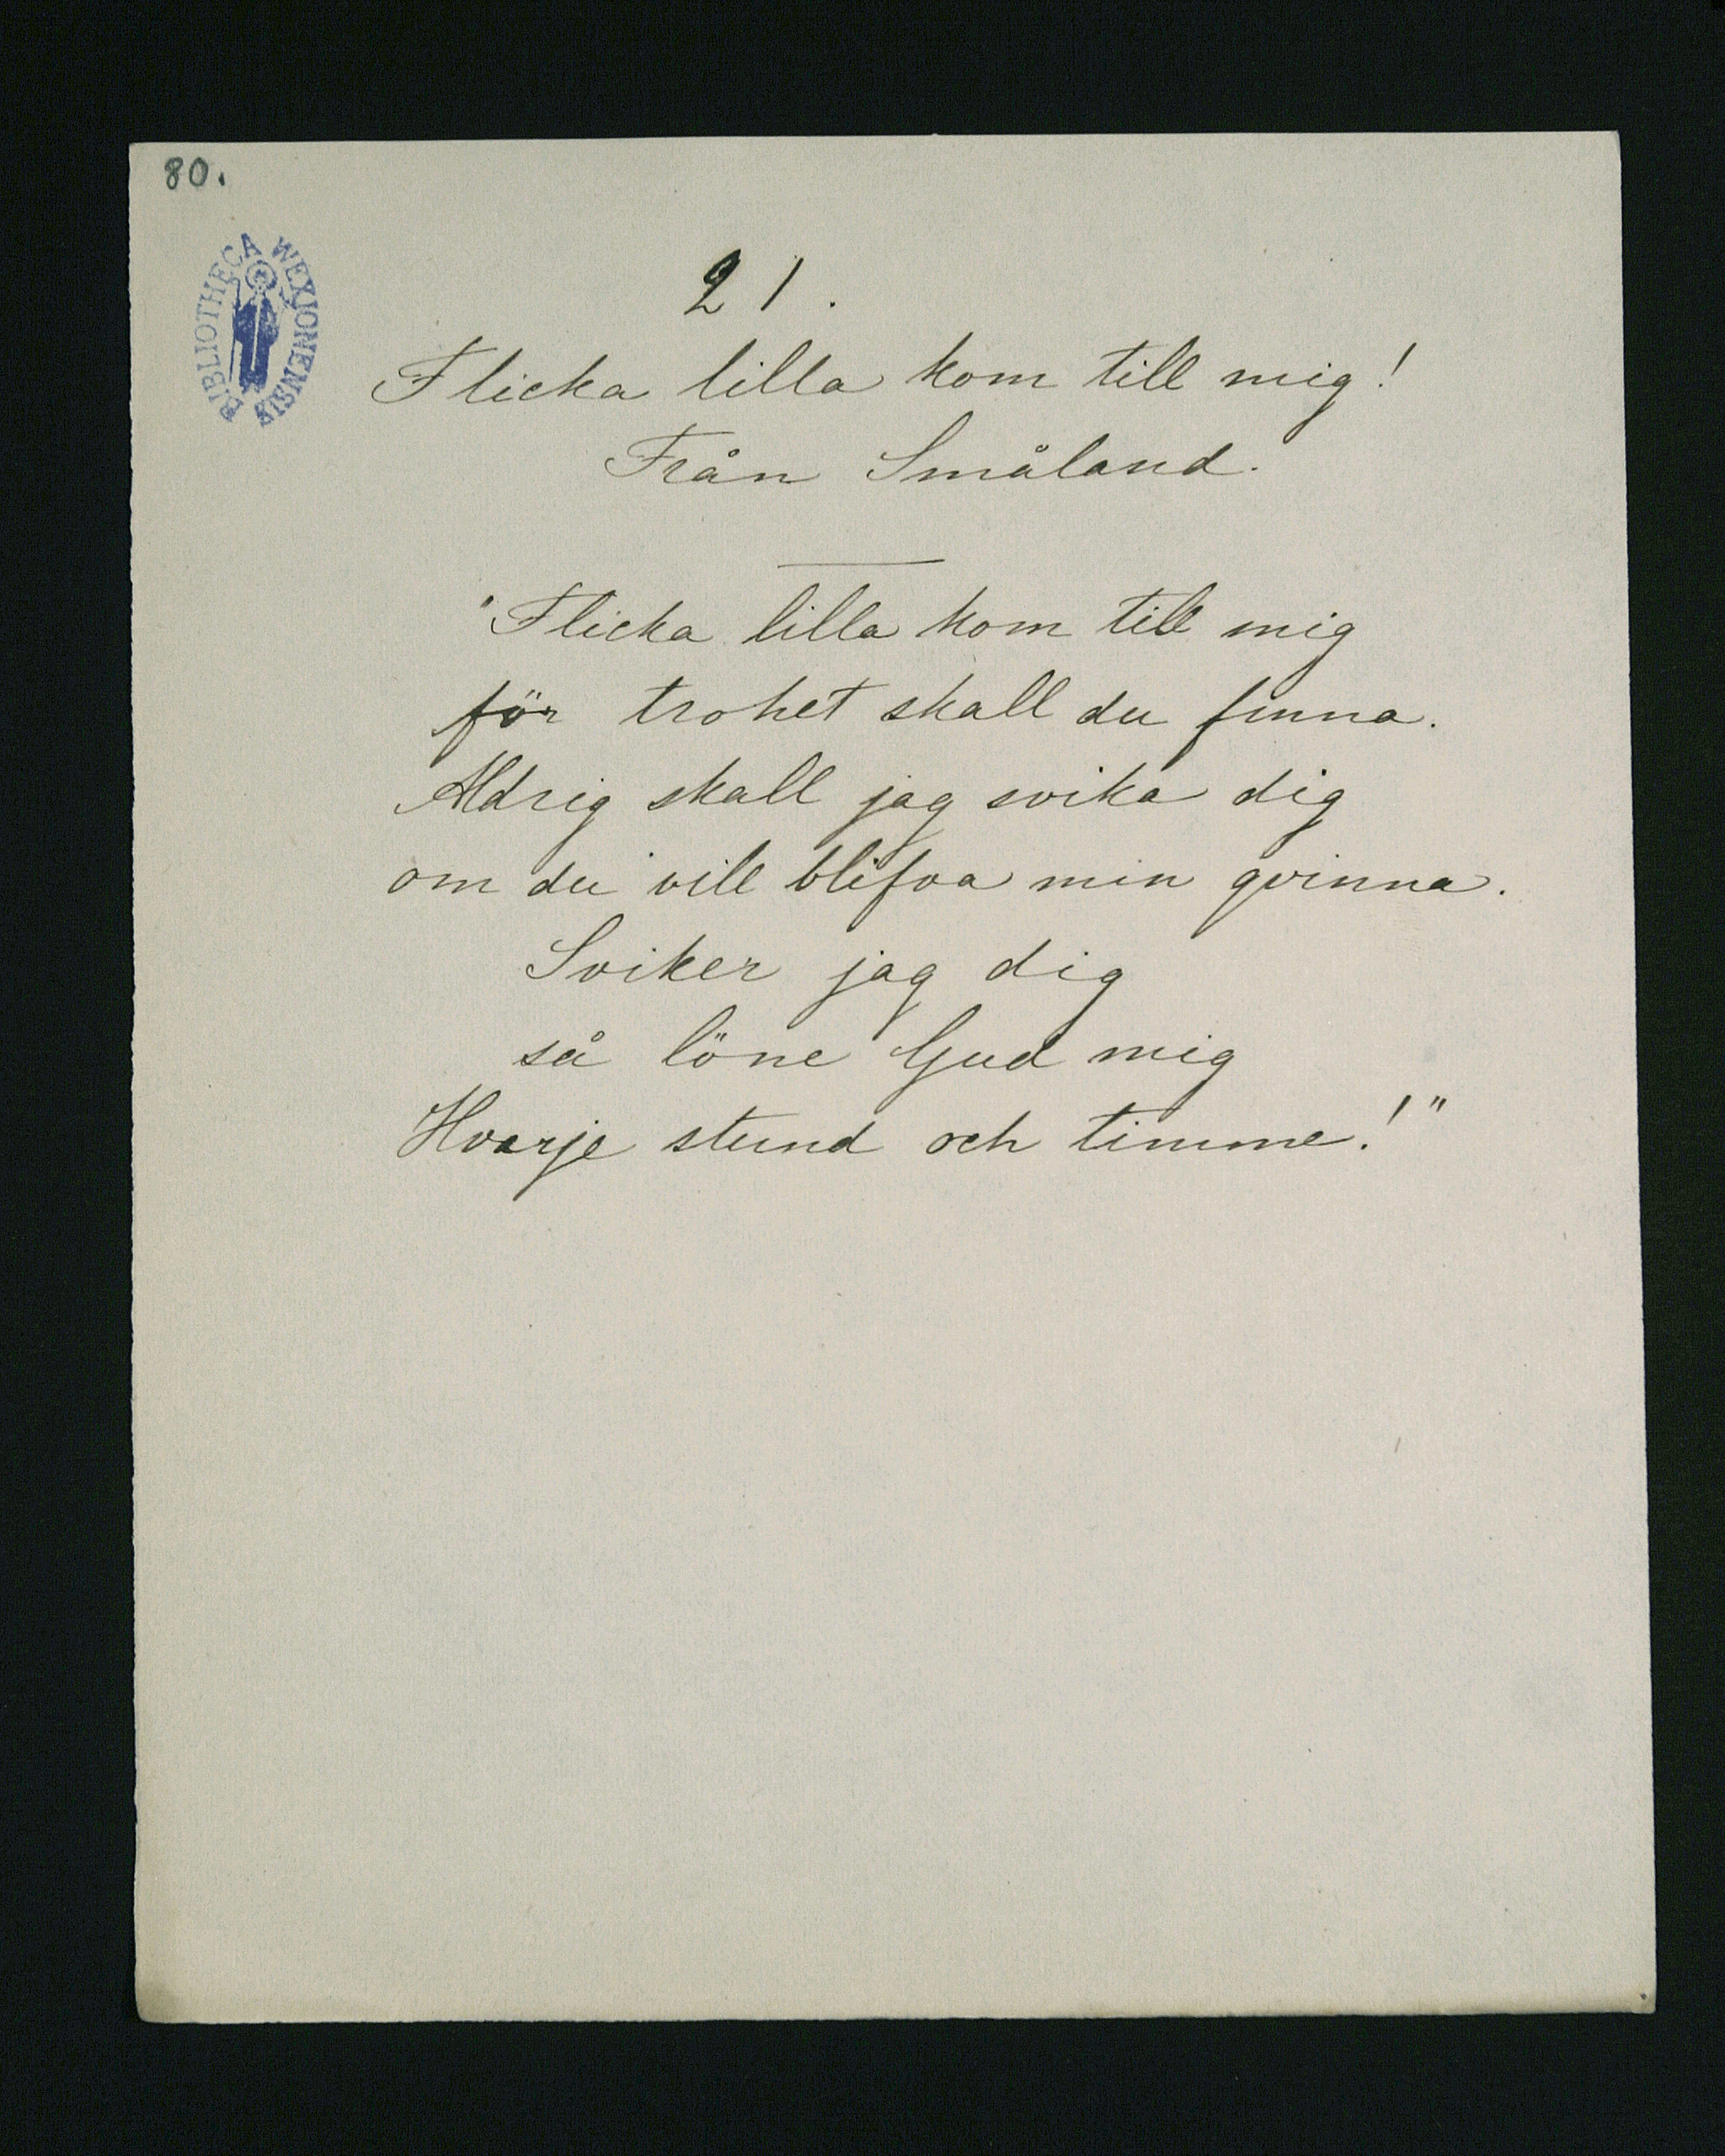 80.
BIBLIOTHECA WEXIONENSIS
21.
Flicka lilla kom till mig!
Från Småland.
"Flicka lilla kom till mig
för trohet skall du finna.
Aldrig skall jag svika dig
om du vill blifva min qvinna.
Sviker jag dig
så löne Gud mig
Hvarje stund och timme!"